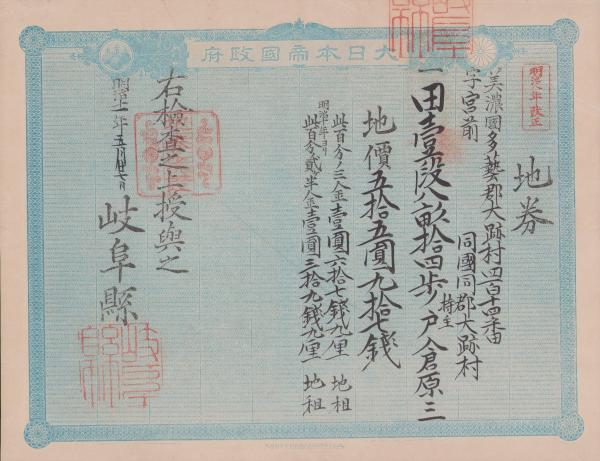 府政國帝本日大
明治九年改正
地券
美濃國多藝郡大跡村四百十四番
字宮前
同國同郡大跡村
一田壹段八畝拾四歩 持主 戸倉原三
地價五拾五圓九拾七錢
此百分ノ三金壹圓六拾七錢九厘 地租
明治十年ヨリ
此百分ノ貳半金壹圓三拾九錢九厘 地租
右検査之上授與之
明治十一年五月廿七日
岐阜縣